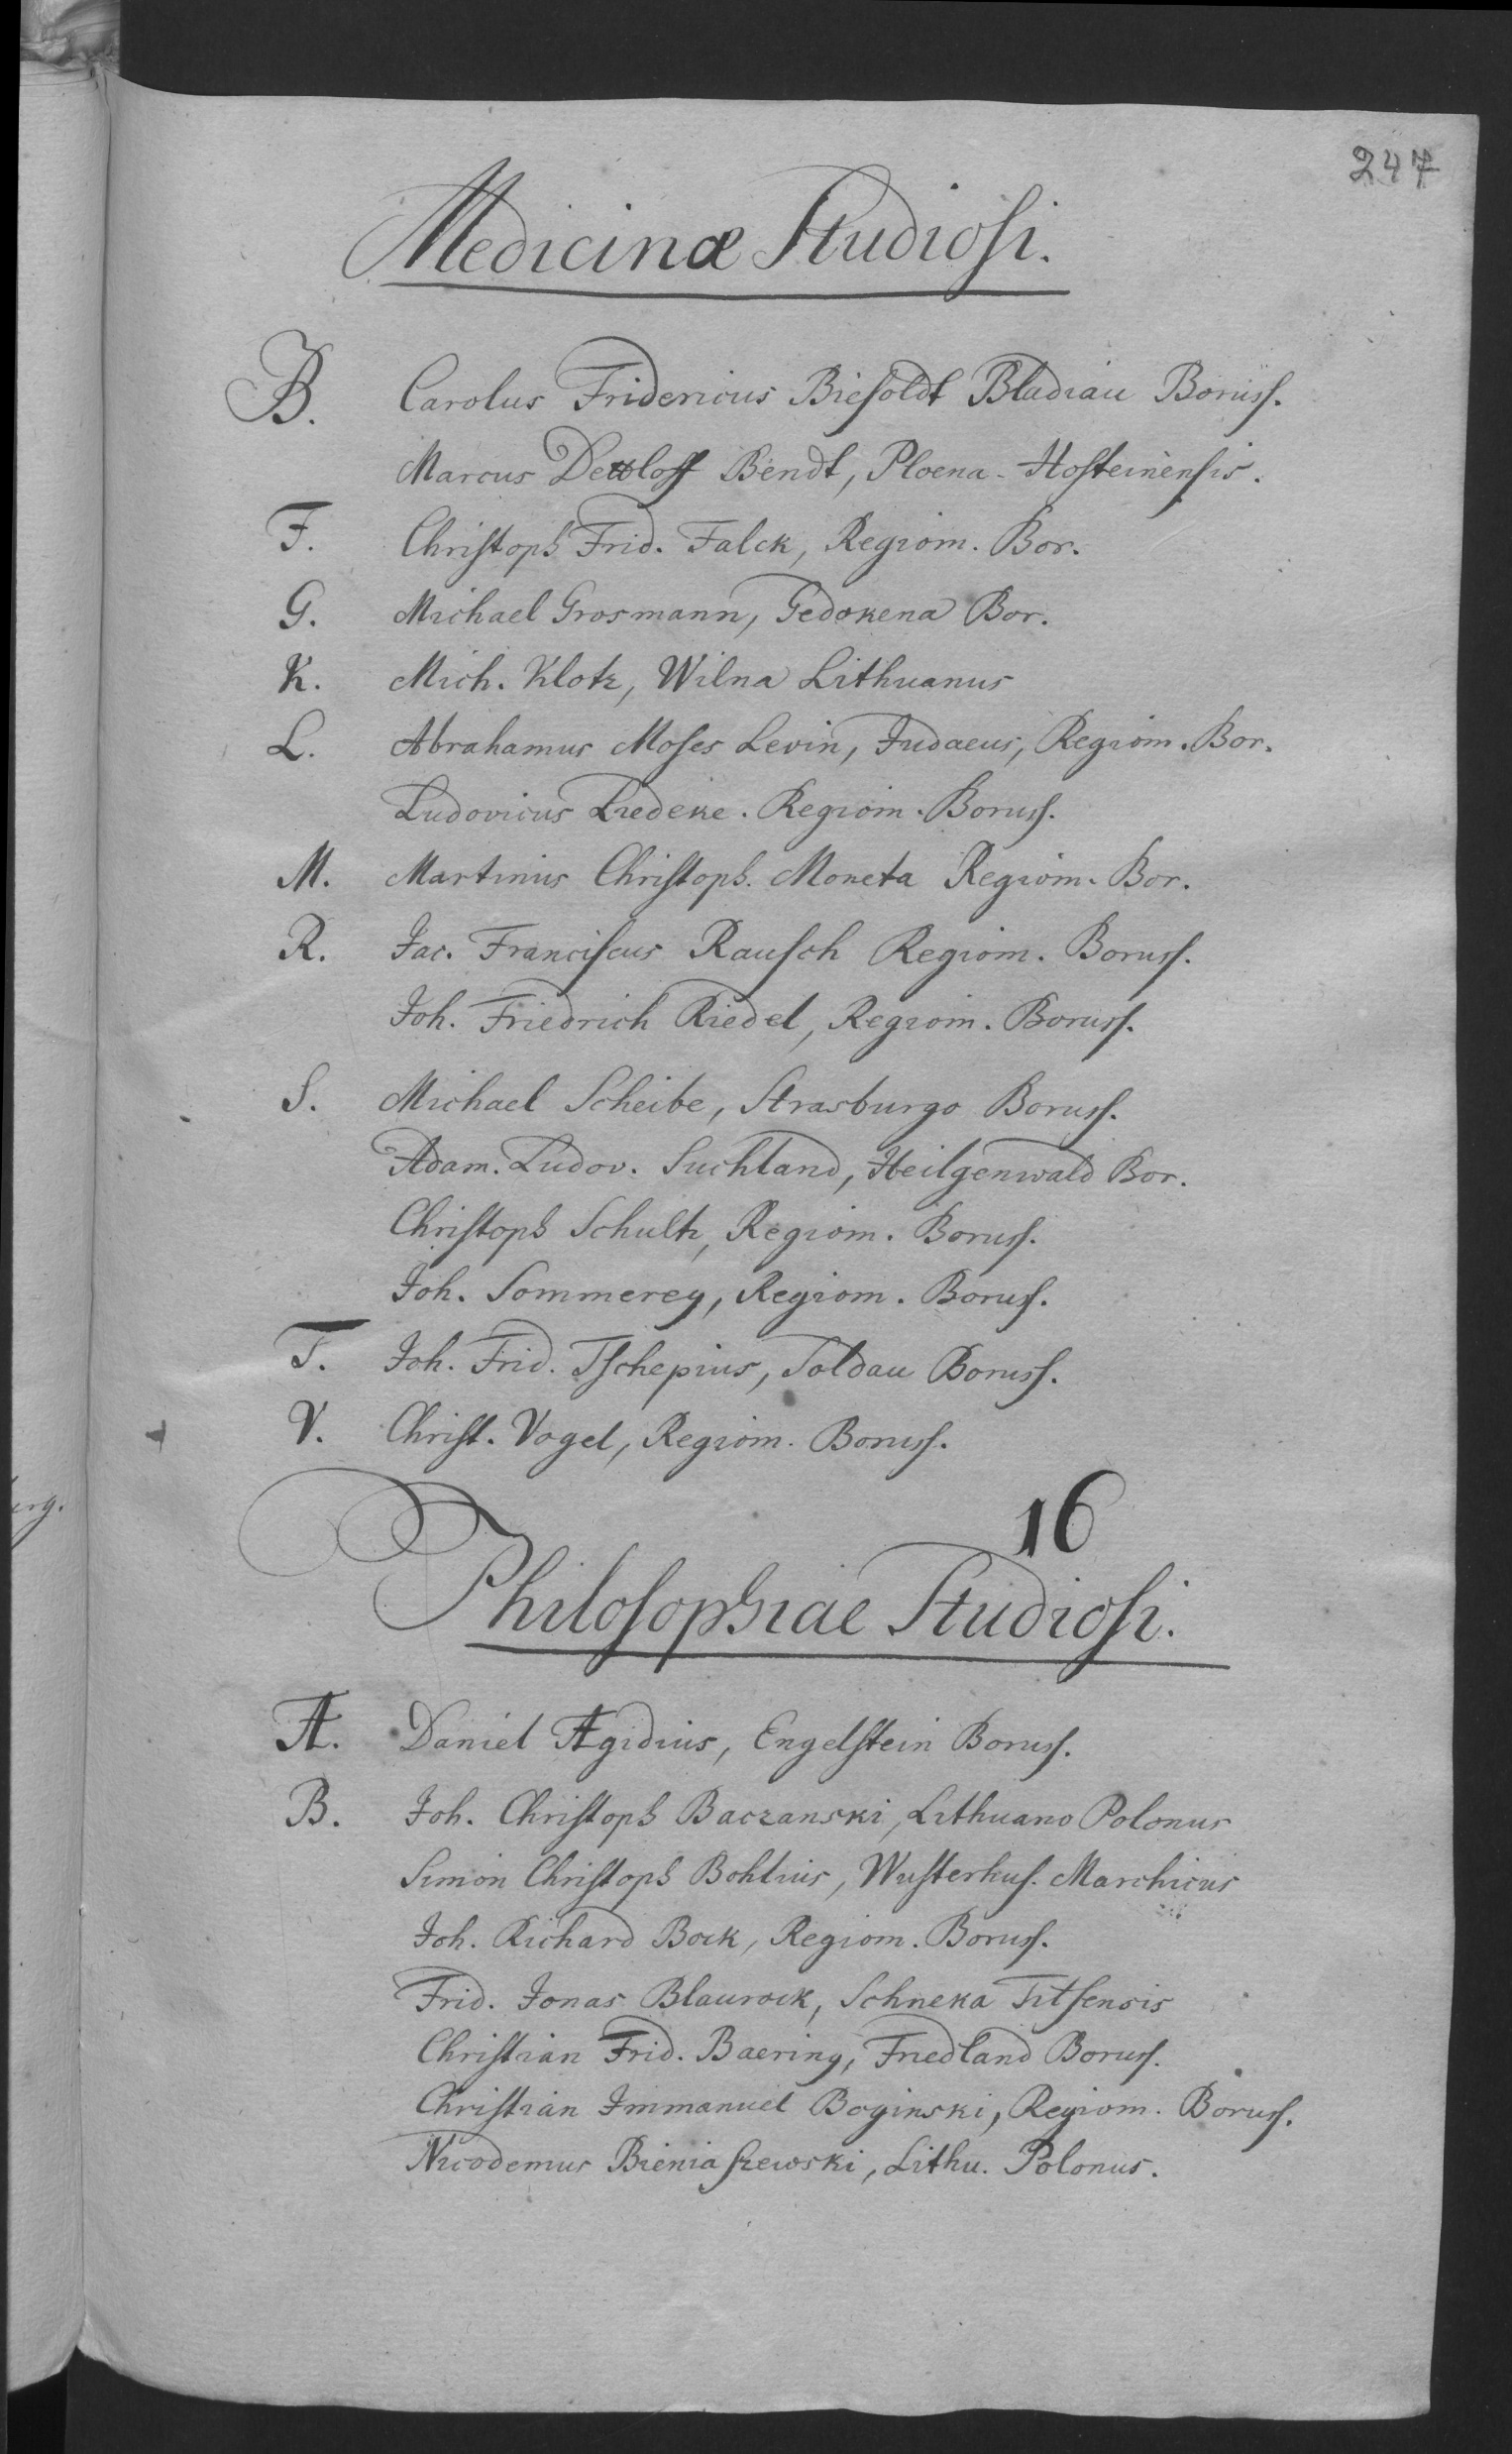 247
Medicinæ Studiosi.
B. Carolus Fridericus Biesoldt Bladiau Boruss.
Marcus Detloff Bendt, Ploena-Hosteinensis.
F. Christoph Frid. Falck, Regiom. Bor.
G. Michael Grosmann, Gedokena Bor.
K. Mich. Klotz, Wilna Lithuanus
L. Abrahamus Moses Levin, Judaeus, Regiom. Bor.
Ludovicus Liedeke. Regiom. Boruss.
M. Martinus Christoph. Moneta Regiom. Bor.
R. Jac. Franciscus Rausch Regiom. Boruss.
Joh. Friedrich Riedel, Regiom. Boruss.
S. Michael Scheibe, Strasburgo Boruss.
Adam. Ludov. Suchland, Heilgenwald Bor.
Christoph Schultz, Regiom. Boruss.
Joh. Sommerey, Regiom. Boruss.
T. Joh. Frid. Tschepius, Soldau Boruss.
V. Christ. Vogel, Regiom. Boruss.
16
Philosophiae Studiosi.
A. Daniel Agidius, Engelstein Boruss.
B. Joh. Christoph Baczanski, Lithuano Polonus
Simon Christoph Bohlius, Wusterhus. Marchicus
Joh. Richard Bock, Regiom. Boruss.
Frid. Jonas Blaurock, Schneka Titsensis
Christian Frid. Baering, Friedland Boruss.
Christian Immanuel Boginski, Regiom. Boruss.
Nicodemus Bieniaszewski, Lithu. Polonus.